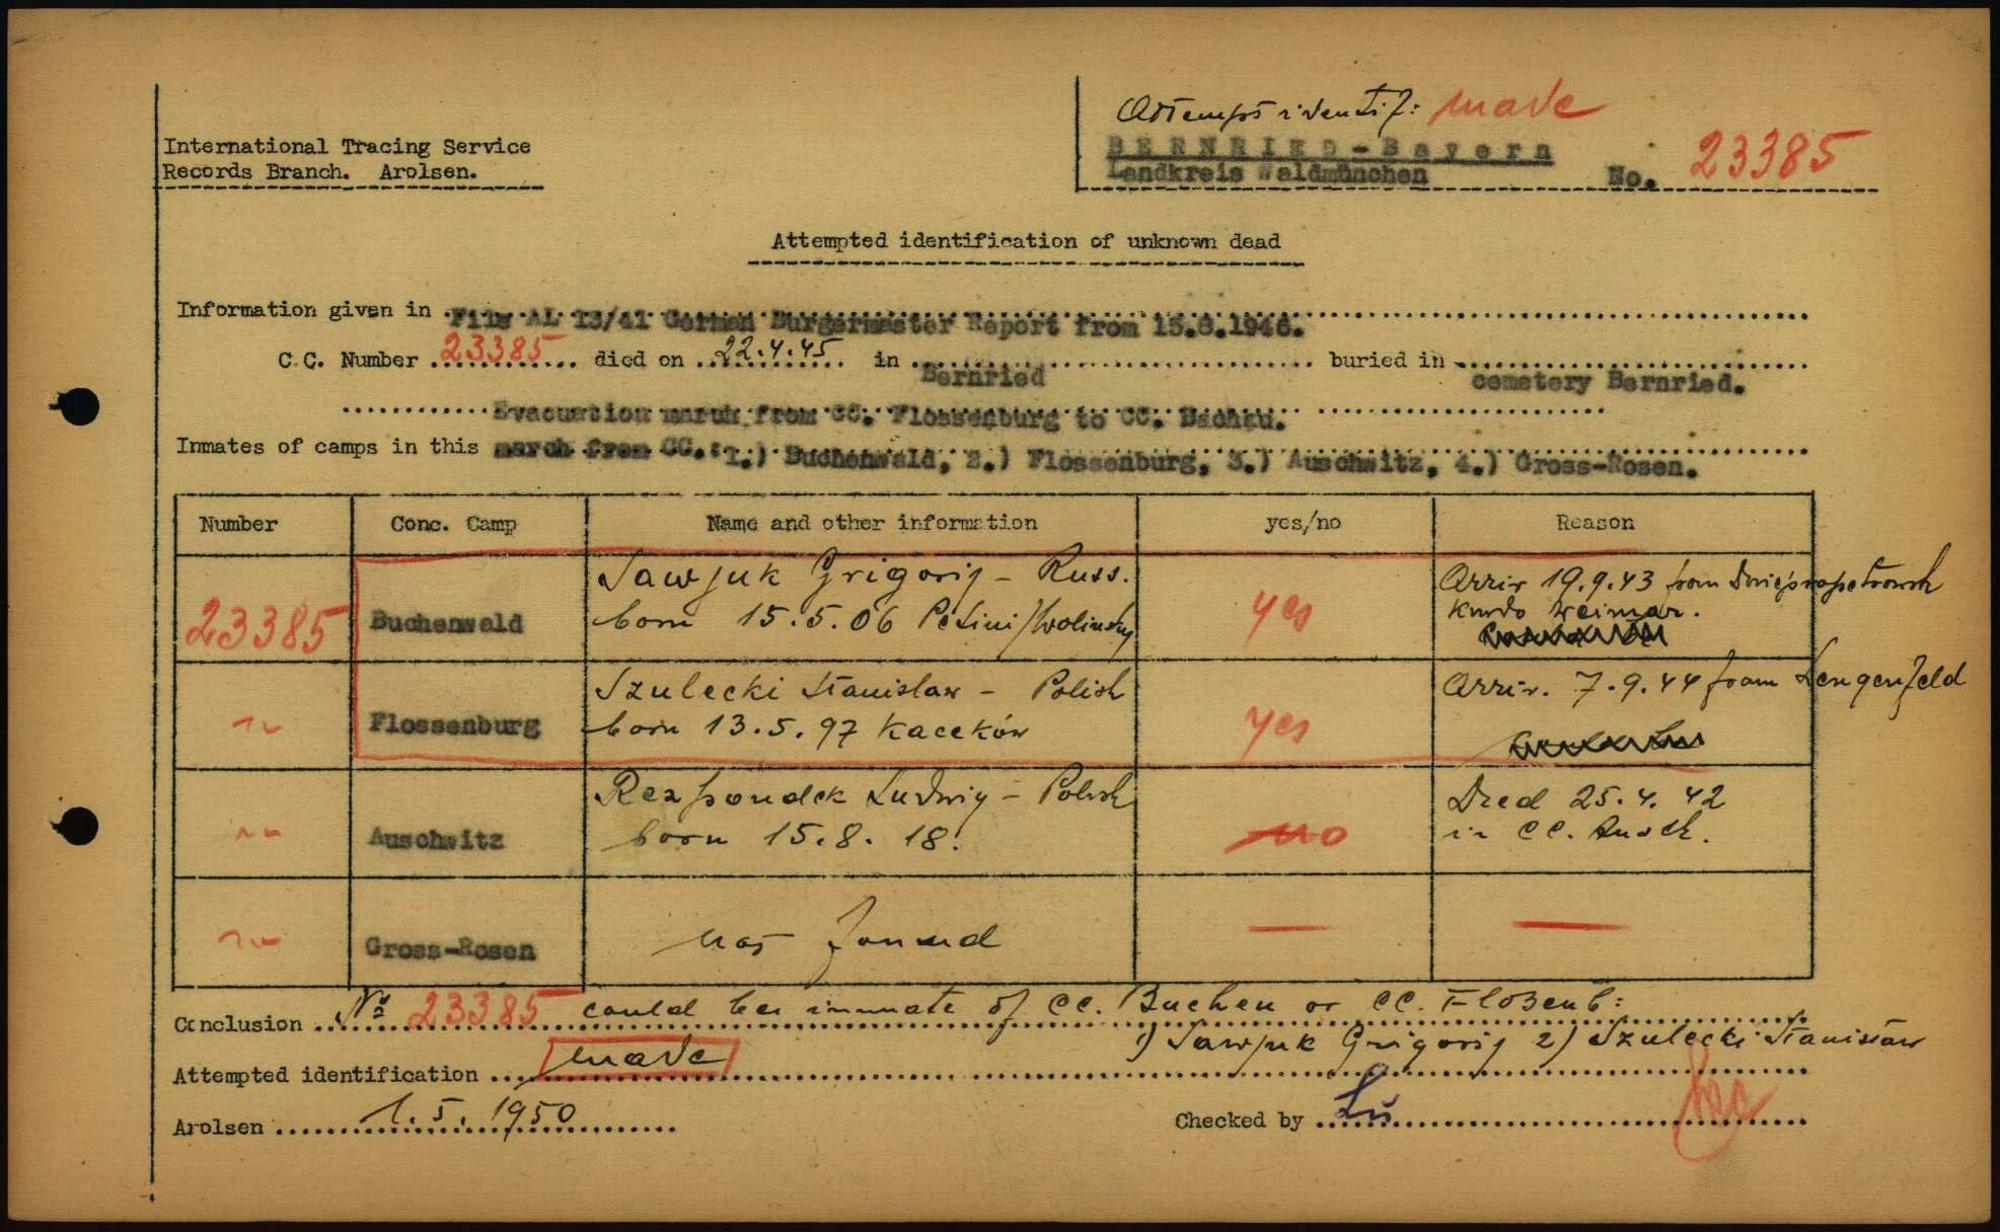 Attempt identif: made
International Tracing Service
Records Branch. Arolsen.
BERNRIED-Bayern
Landkreis Waldmünchen No. 23385
Attempted identification of unknown dead
Information given in Film AL 13/41 German Burgermaster Report from 15.8.1946.
C.C. Number 23385 died on 22.4.45 in Bernried buried in cemetery Bernried.
Evacuation march from CC. Flossenburg to CC. Dachau.
Inmates of camps in this march from CC.: 1.) Buchenwald, 2.) Flossenburg, 3.) Auschwitz, 4.) Gross-Rosen.
Number Conc. Camp Name and other information yes/no Reason
23385 Buchenwald Sawjuk Grigorij - Russ. yes Arriv 19.9.43 from Dniepropetrowsk
born 15.5.06 Weimar.
Flossenburg Szulecki Stanislaw - Polish yes Arriv. 7.9.44 from Lengenfeld
born 13.5.97
Auschwitz Rezpondek Ludwig - Polish no Died 25.4.42
born 15.8.18. in CC. Ausch.
Gross-Rosen not found —— ——
Conclusion No 23385 could be inmate of CC. Buchen or CC. Floßenb:
1) Sawjuk Grigorij 2) Szulecki Stanislaw
Attempted identification made
Arolsen 1.5.1950 Checked by Lü